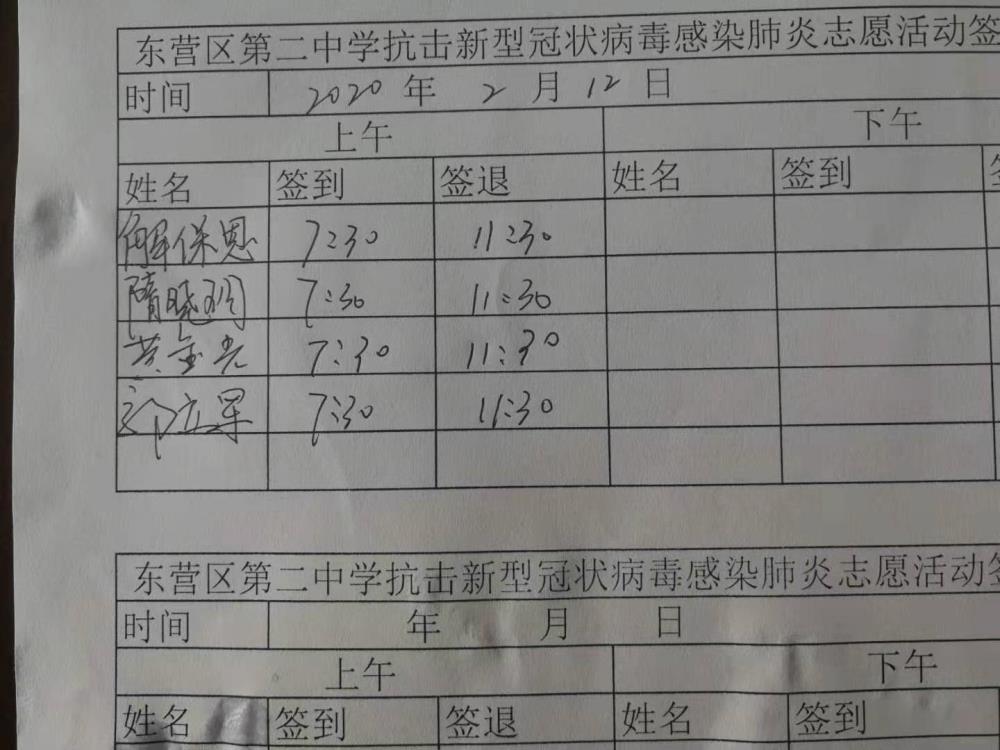 东营区第二中学抗击新型冠状病毒感染肺炎志愿活动签
时间 2020 年 2 月 12 日
上午 下午
姓名 签到 签退 姓名 签到
解保恩 7:30 11:30
隋晓玥 7:30 11:30
黄金光 7:30 11:30
郭立军 7:30 11:30
东营区第二中学抗击新型冠状病毒感染肺炎志愿活动签
时间 年 月 日
上午 下午
姓名 签到 签退 姓名 签到